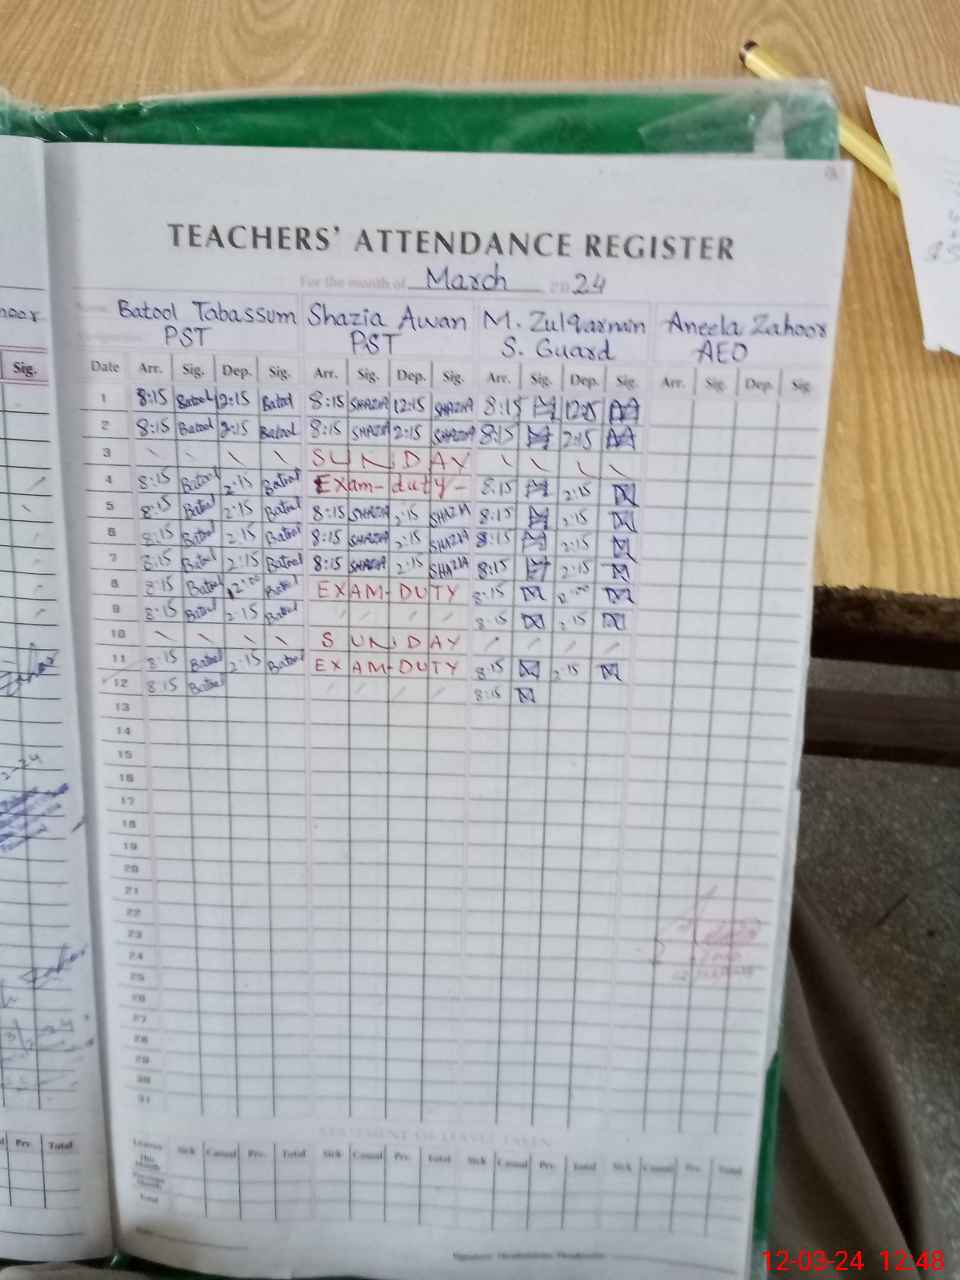 TEACHERS' ATTENDANCE REGISTER
For the month of March 2024
Batool Tabassum Shazia Awan M. Zulqarnain Aneela Zahoor
PST PST S. Guard AEO
Sig. Date Arr. Sig. Dep. Sig. Arr. Sig. Dep. Sig. Arr. Sig. Dep. Sig. Arr. Sig. Dep. Sig.
1 8:15 Batool 12:15 Batool 8:15 SHAZIA 12:15 SHAZIA 8:15 12:15
2 8:15 Batool 2:15 Batool 8:15 SHAZIA 2:15 SHAZIA 8:15 2:15
3 SUNDAY
4 8:15 Batool 2:15 Batool Exam-duty- 8:15 2:15
5 8:15 Batool 2:15 Batool 8:15 SHAZIA 2:15 SHAZIA 8:15 2:15
6 8:15 Batool 2:15 Batool 8:15 SHAZIA 2:15 SHAZIA 8:15 2:15
7 8:15 Batool 2:15 Batool 8:15 SHAZIA 2:15 SHAZIA 8:15 2:15
8 8:15 Batool 12:00 Batool EXAM-DUTY 8:15 12:00
9 8:15 Batool 2:15 Batool 8:15 2:15
10 SUNDAY
11 8:15 Batool 2:15 Batool EXAM-DUTY 8:15 2:15
12 8:15 Batool 8:15
13
14
15
16
17
18
19
20
21
22
23
24
25
26
27
28
29
30
31
STATEMENT OF LEAVE TAKEN
Prv. Total Leaves Sick Casual Prv. Total Sick Casual Prv. Total Sick Casual Prv. Total Sick Casual Prv. Total
This Month
Previous Month
Total
12-03-24 12:48